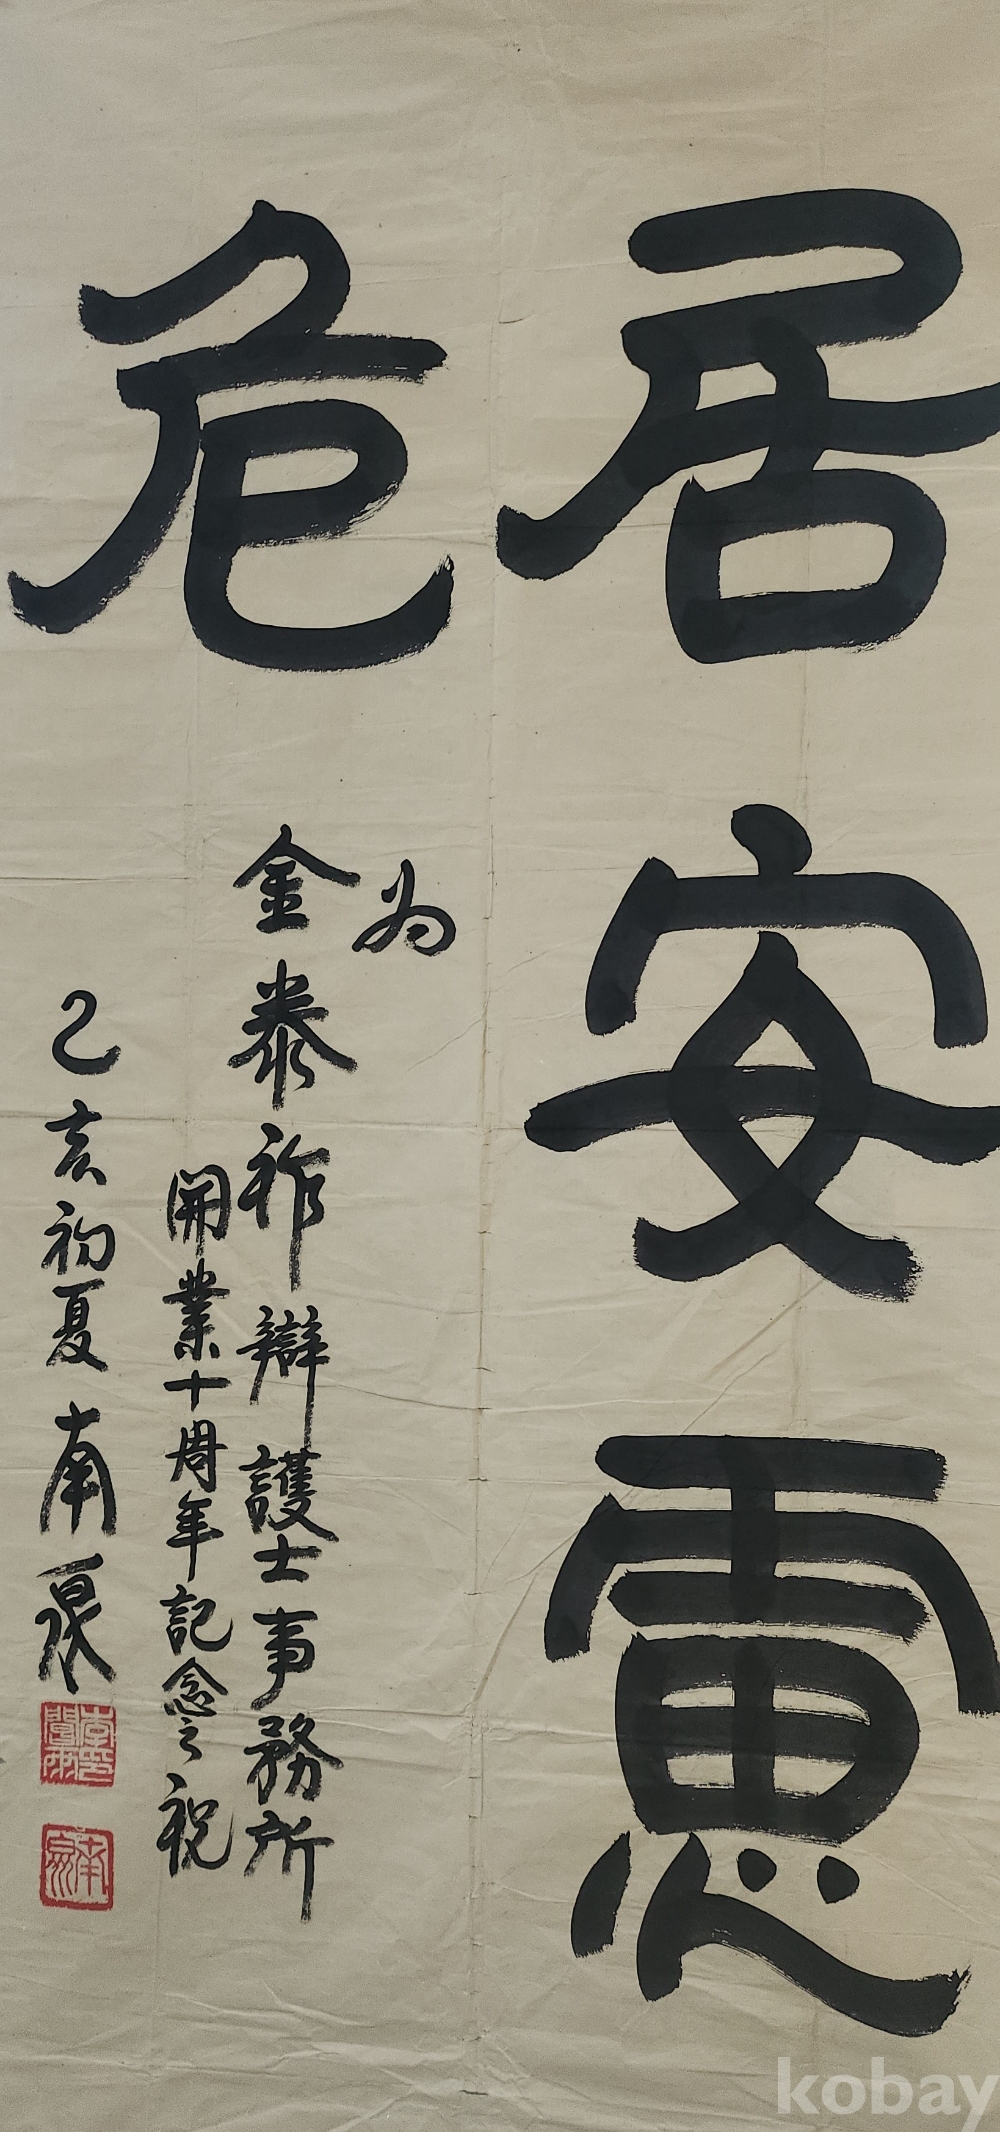 居安慮
危
為
金泰祚辯護士事務所
開業十周年記念之祝
乙亥初夏 南
kobay